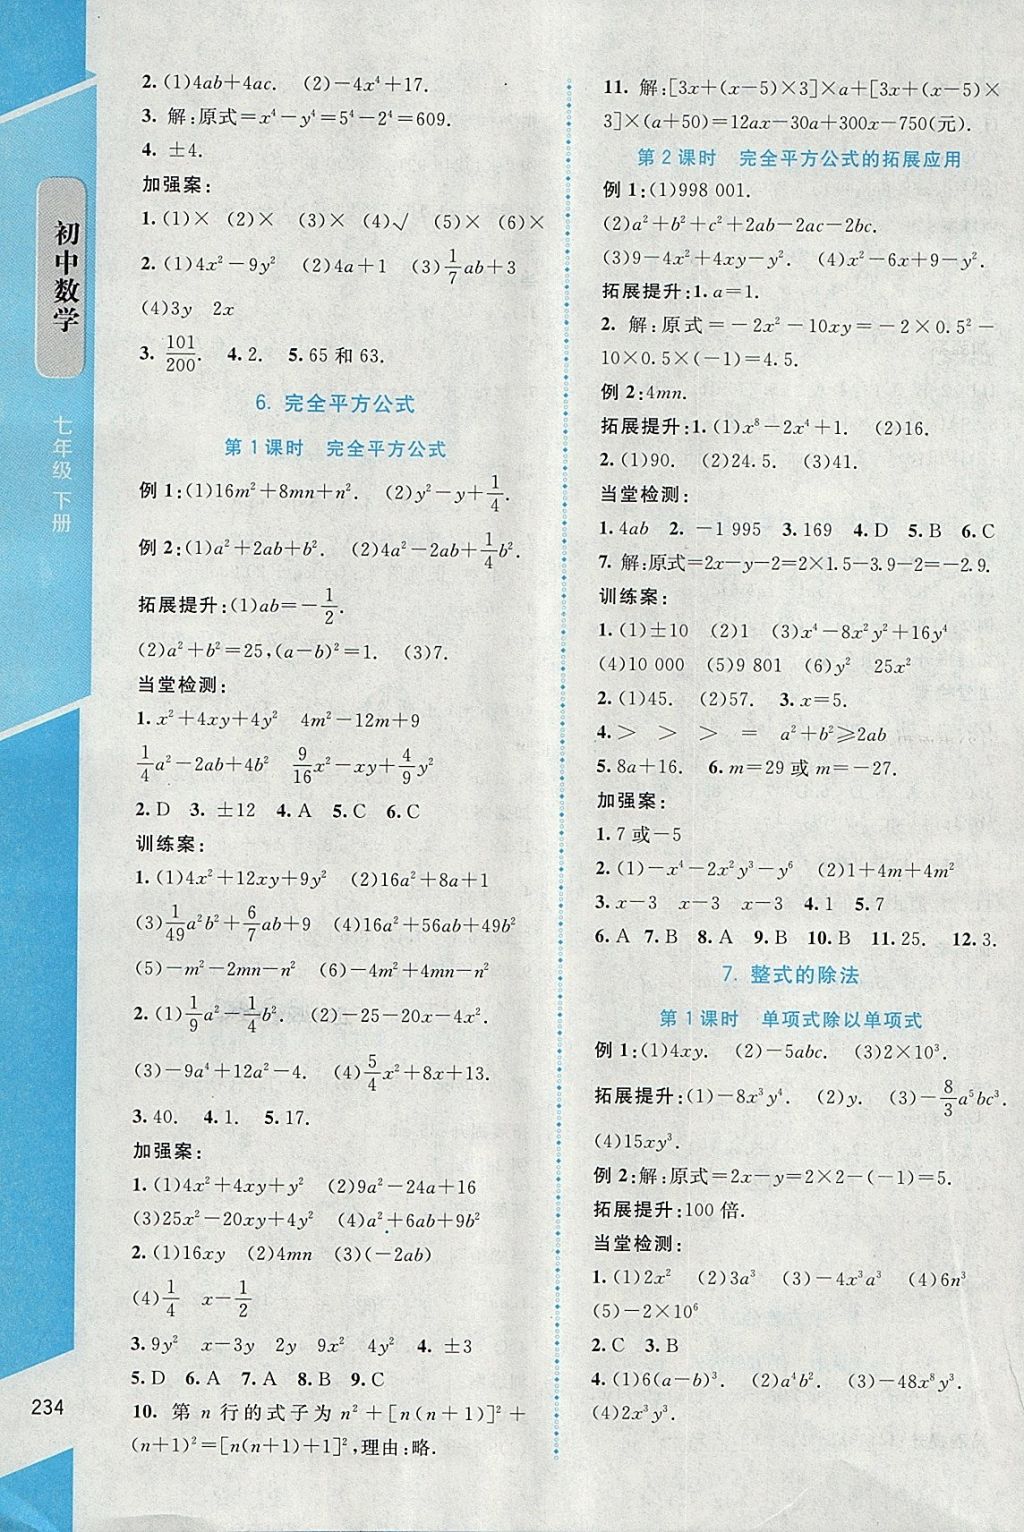 初中数学
七年级 下册
2. (1)4ab+4ac. (2)-4x⁴+17.
3. 解:原式=x⁴-y⁴=5⁴-2⁴=609.
4. ±4.
加强案:
1. (1)× (2)× (3)× (4)√ (5)× (6)×
2. (1)4x²-9y² (2)4a+1 (3)1/7ab+3
(4)3y 2x
3. 101/200. 4. 2. 5. 65 和 63.
6. 完全平方公式
第 1 课时 完全平方公式
例 1:(1)16m²+8mn+n². (2)y²-y+1/4.
例 2:(1)a²+2ab+b². (2)4a²-2ab+1/4b².
拓展提升:(1)ab=-1/2.
(2)a²+b²=25,(a-b)²=1. (3)7.
当堂检测:
1. x²+4xy+4y² 4m²-12m+9
1/4a²-2ab+4b² 9/16x²-xy+4/9y²
2. D 3. ±12 4. A 5. C 6. C
训练案:
1. (1)4x²+12xy+9y² (2)16a²+8a+1
(3)1/49a²b²+6/7ab+9 (4)16a²+56ab+49b²
(5)-m²-2mn-n² (6)4m²+4mn+n²
2. (1)1/9a²-1/4b². (2)-25-20x-4x².
(3)-9a⁴+12a²-4. (4)5/4x²+8x+13.
3. 40. 4. 1. 5. 17.
加强案:
1. (1)4x²+4xy+y² (2)9a²-24a+16
(3)25x²-20xy+4y² (4)a²+6ab+9b²
2. (1)16xy (2)4mn (3)(-2ab)
(4)1/4 x-1/2
3. 9y² x-3y 2y 9x² 4y² 4. ±3
5. D 6. A 7. A 8. B 9. C
10. 第 n 行的式子为 n²+[n(n+1)]²+
(n+1)²=[n(n+1)+1]²,理由:略.
234
11. 解:[3x+(x-5)×3]×a+[3x+(x-5)×
3]×(a+50)=12ax-30a+300x-750(元).
第 2 课时 完全平方公式的拓展应用
例 1:(1)998 001.
(2)a²+b²+c²+2ab-2ac-2bc.
(3)9-4x²+4xy-y². (4)x²-6x+9-y².
拓展提升:1. a=1.
2. 解:原式=-2x²-10xy=-2×0.5²-
10×0.5×(-1)=4.5.
例 2:4mn.
拓展提升:1. (1)x⁸-2x⁴+1. (2)16.
2. (1)90. (2)24.5. (3)41.
当堂检测:
1. 4ab 2. -1 995 3. 169 4. D 5. B 6. C
7. 解:原式=2x-y-2=2×1.5-3.9-2=-2.9.
训练案:
1. (1)±10 (2)1 (3)x⁴-8x²y²+16y⁴
(4)10 000 (5)9 801 (6)y² 25x²
2. (1)45. (2)57. 3. x=5.
4. > > > = a²+b²≥2ab
5. 8a+16. 6. m=29 或 m=-27.
加强案:
1. 7 或-5
2. (1)-x⁴-2x²y³-y⁶ (2)1+4m+4m²
3. x-3 x-3 x-3 4. 1 5. 7
6. A 7. B 8. A 9. B 10. B 11. 25. 12. 3.
7. 整式的除法
第 1 课时 单项式除以单项式
例 1:(1)4xy. (2)-5abc. (3)2×10³.
拓展提升:(1)-8x³y⁴. (2)y. (3)-8/3a⁵bc³.
(4)15xy³.
例 2:解:原式=2x-y=2×2-(-1)=5.
拓展提升:100 倍.
当堂检测:
1. (1)2x² (2)3a³ (3)-4x³a³ (4)6n³
(5)-2×10⁶
2. C 3. B
4. (1)6(a-b)³. (2)a⁴b². (3)-48x⁸y³.
(4)2x³y³.